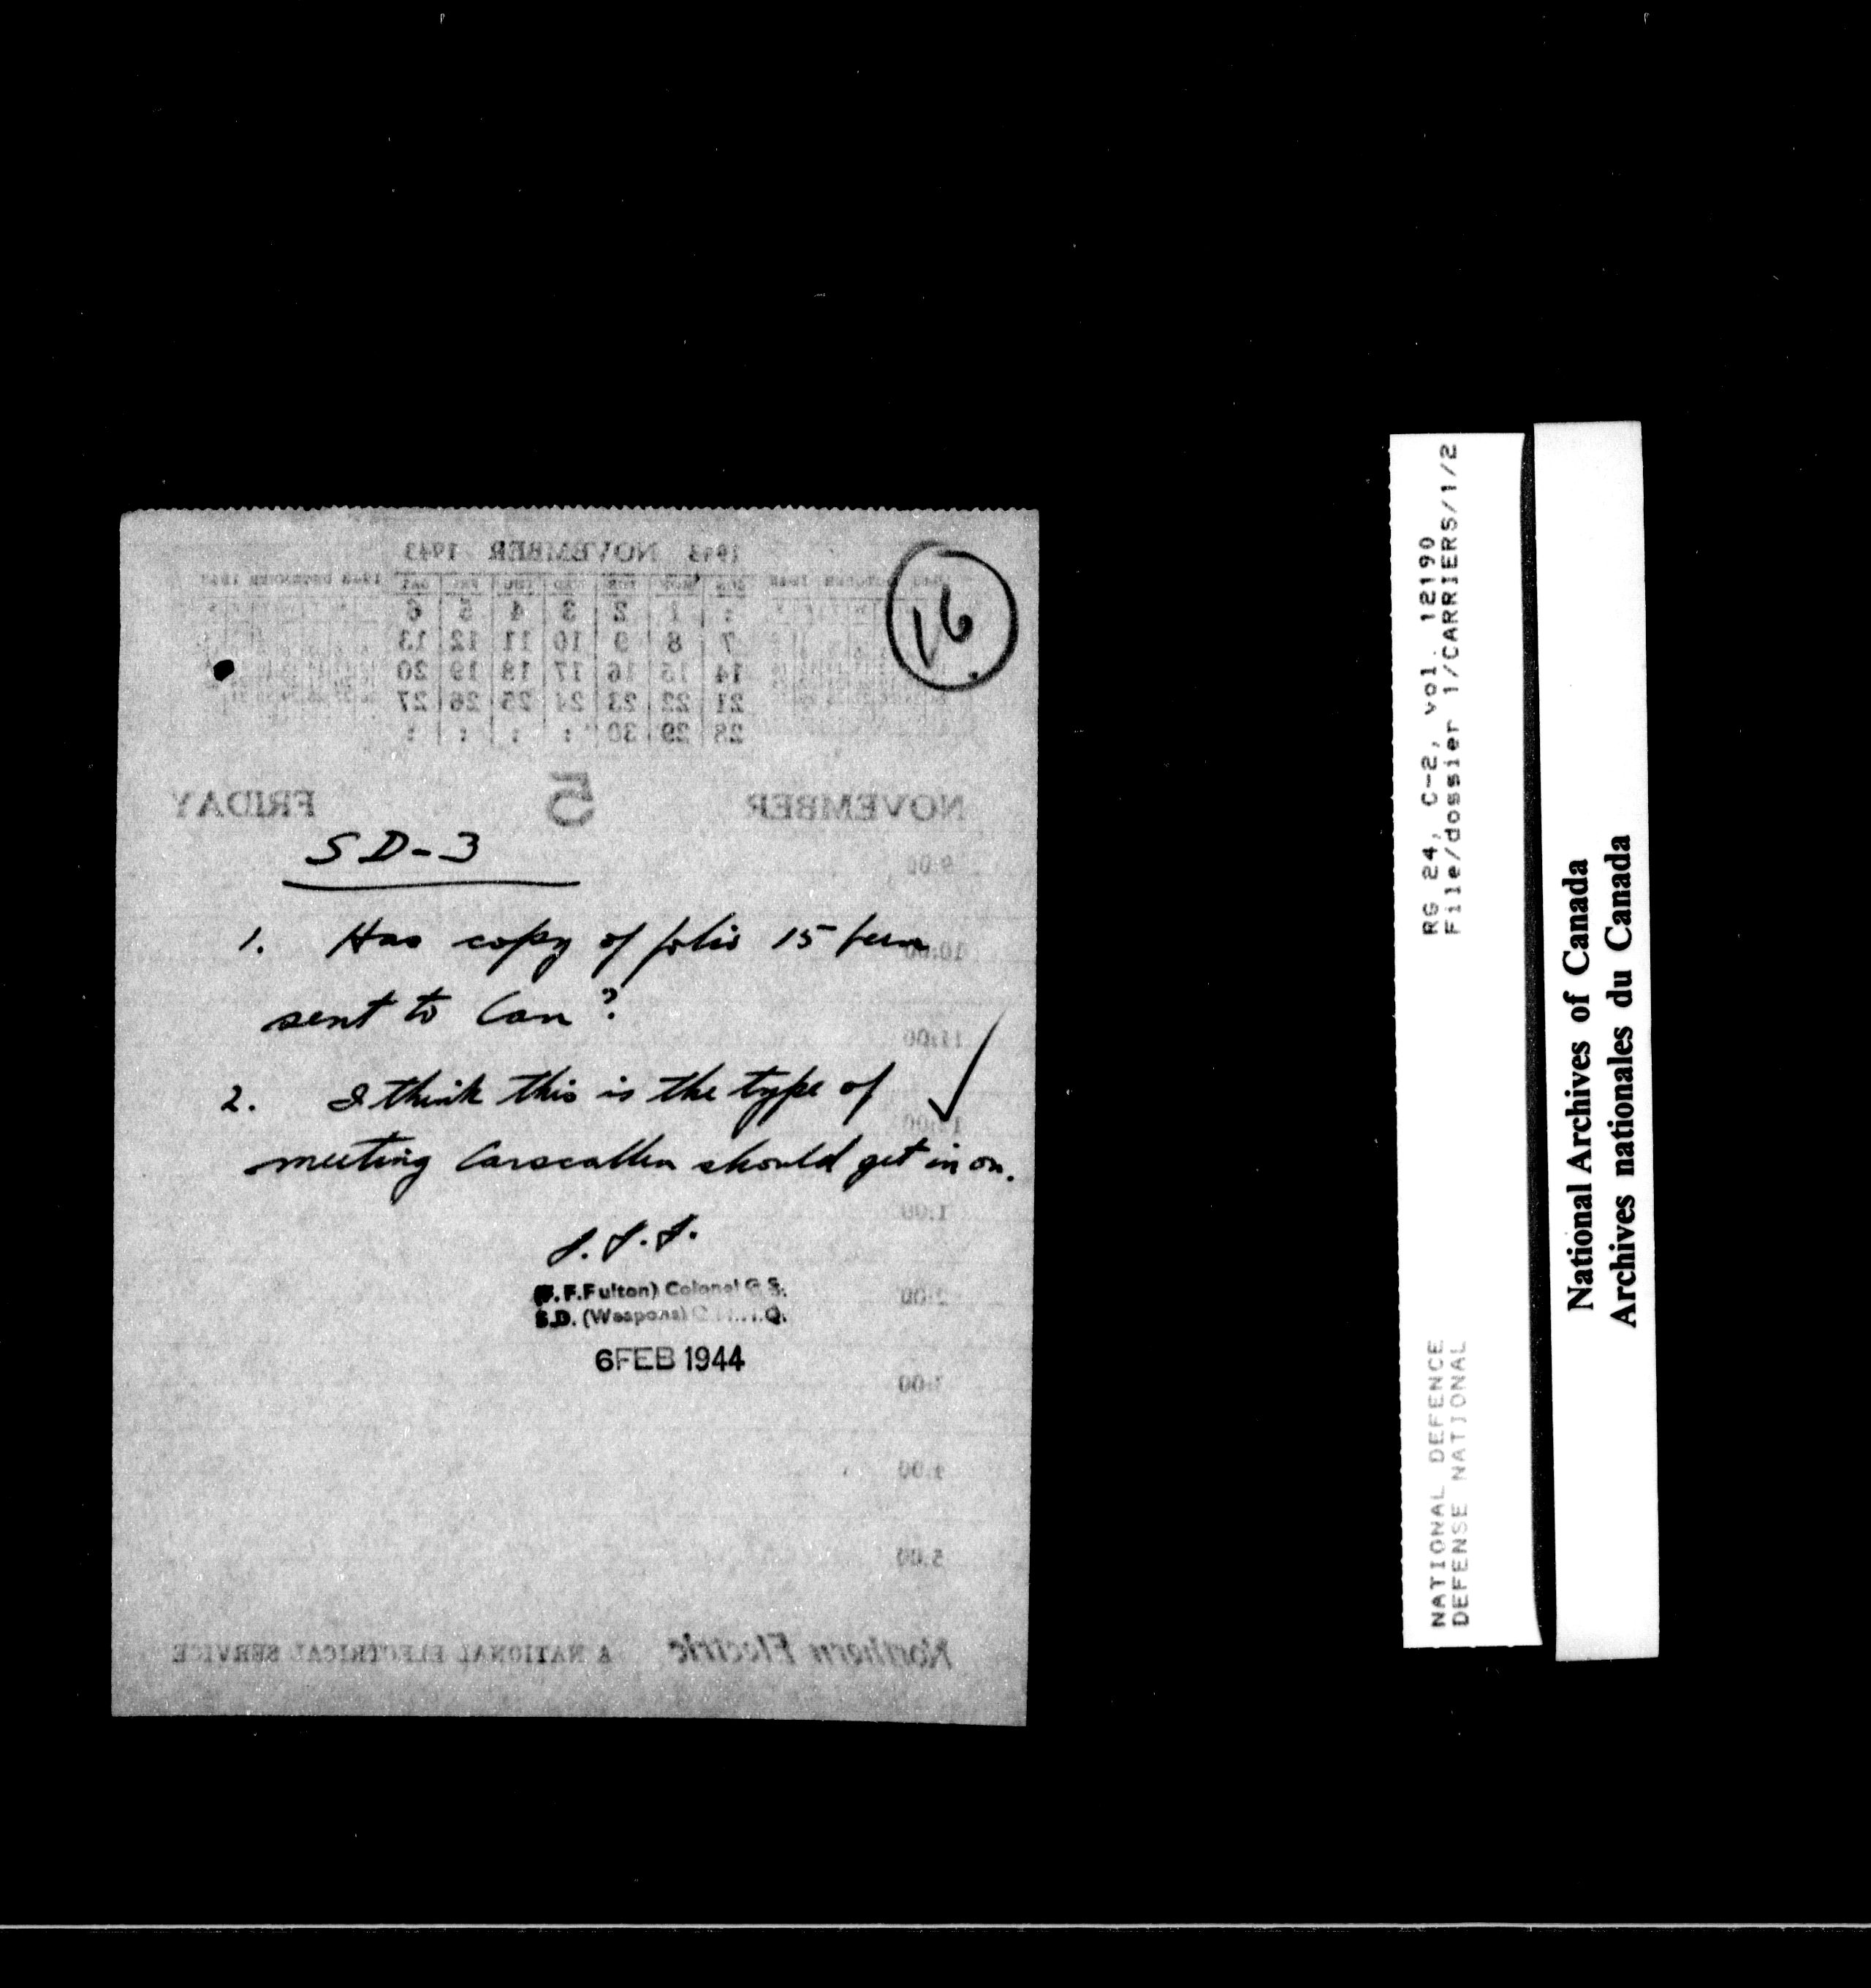 16.
SD-3
1. Has copy of folio 15 been
sent to Can?
2. I think this is the type of
meeting Carscallen should get in on.
F.F.F.
(F.F.Fulton) Colonel G.S.
S.D. (Weapons)
6 FEB 1944
1943 NOVEMBER 1943
SUN MON TUE WED THU FRI SAT
: 1 2 3 4 5 6
7 8 9 10 11 12 13
14 15 16 17 18 19 20
21 22 23 24 25 26 27
28 29 30 : : : :
NOVEMBER 5 FRIDAY
9:00
10:00
11:00
1:00
2:00
4:00
5:00
Northern Electric A NATIONAL ELECTRICAL SERVICE
RG 24, C-2, vol. 12190
File/dossier 1/CARRIERS/1/2
NATIONAL DEFENCE
DEFENSE NATIONAL
National Archives of Canada
Archives nationales du Canada